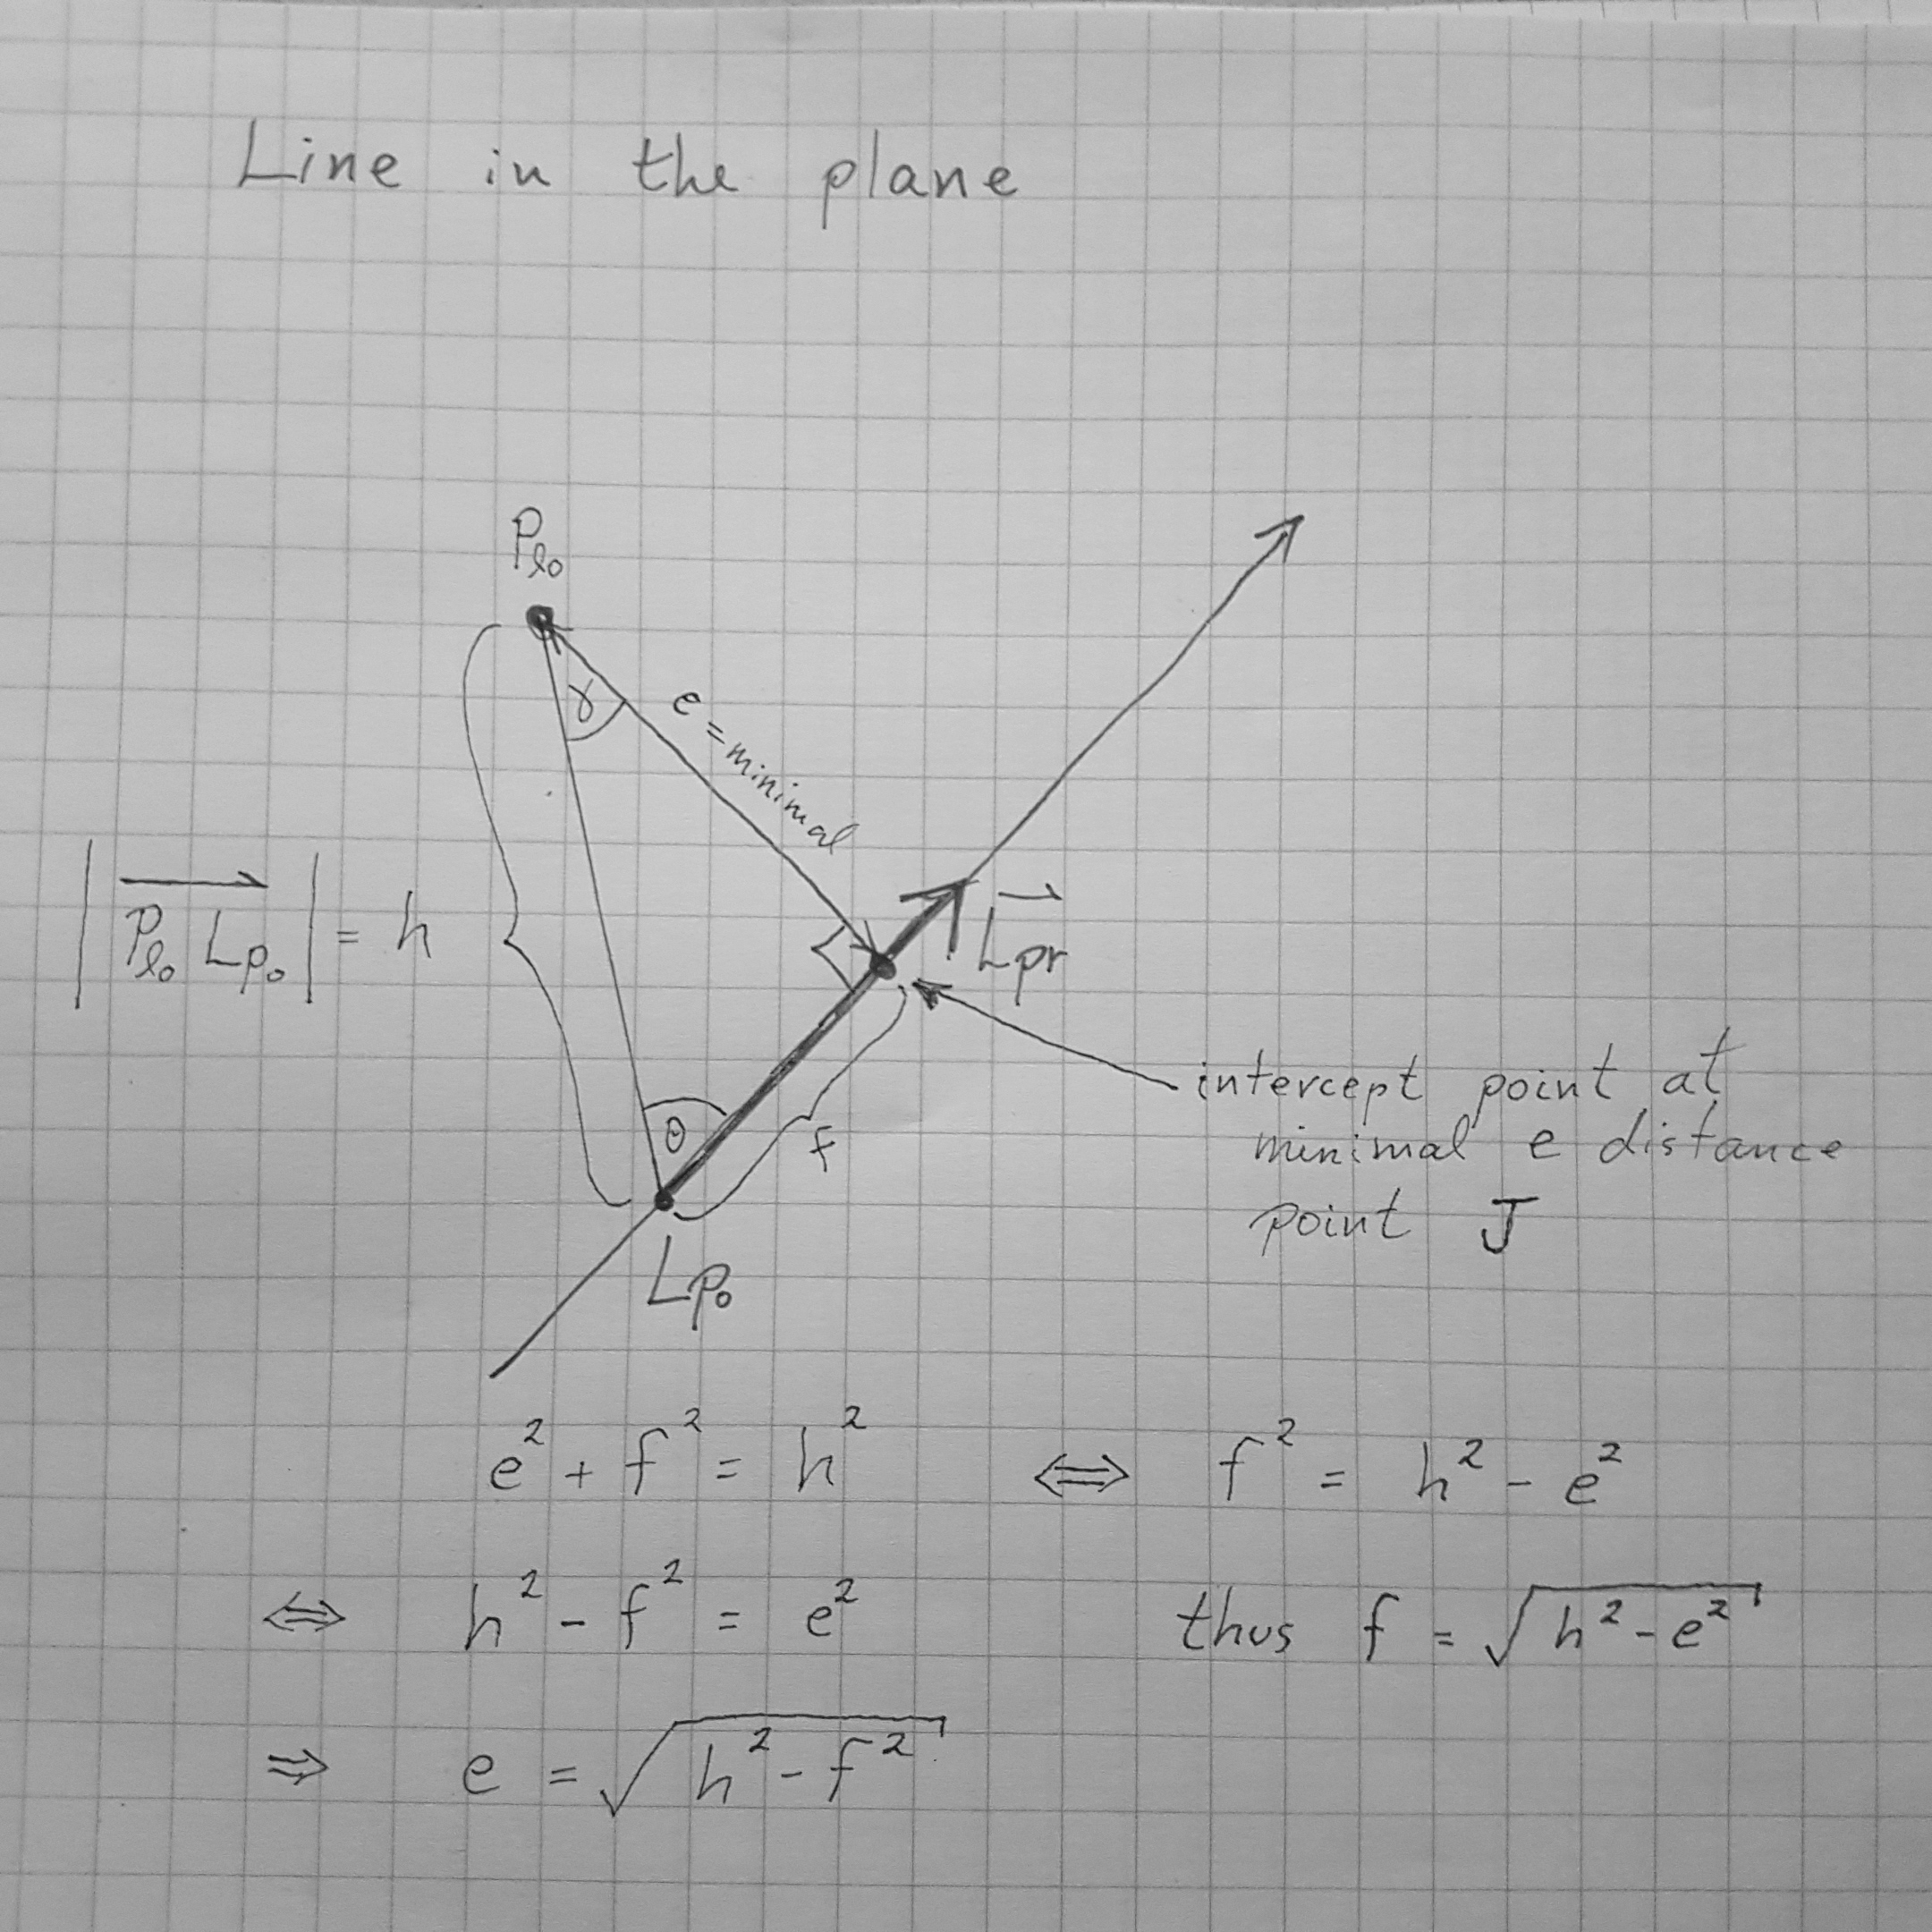 Line in the plane
Pℓ₀
γ
e = minimal
|Pℓ₀ Lp₀| = h
Lpr
intercept point at
minimal e distance
point J
θ
f
Lp₀
e² + f² = h² ⇔ f² = h² - e²
⇔ h² - f² = e² thus f = √(h² - e²)
⇒ e = √(h² - f²)